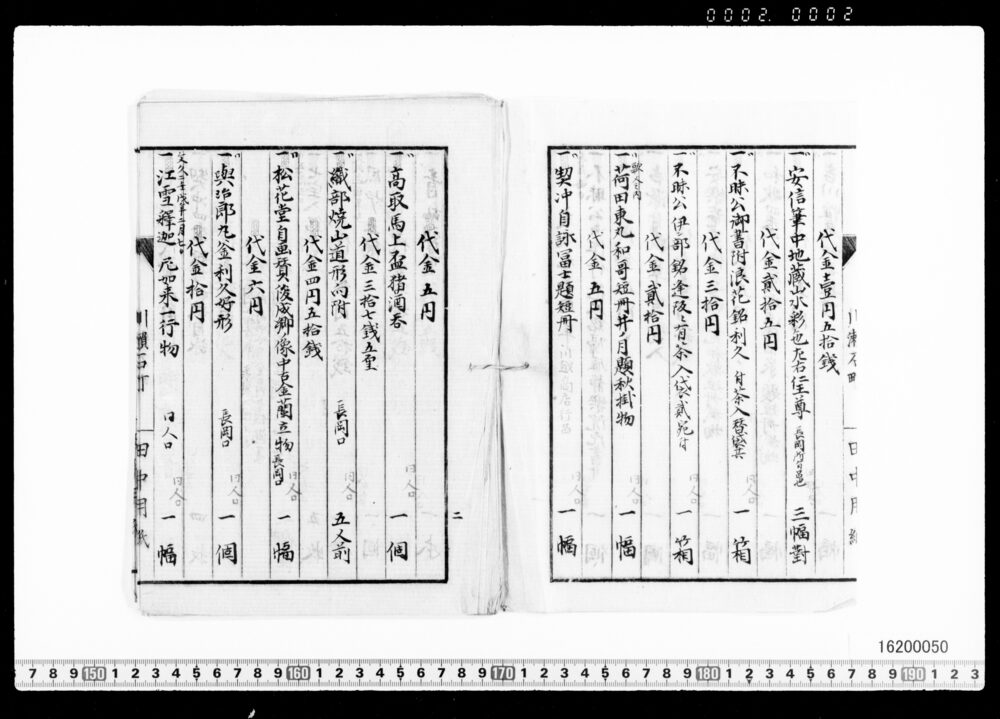 0002 0002
代金壹円五拾銭
一 安信筆中地蔵山水彩色左右仁王尊 三幅對
代金貳拾五円
一 不昧公御書附浪花銘利久 一箱
代金三拾円
一 不昧公伊部銘逢阪 茶入袋貳 一箱
代金貳拾円
一 荷田東丸和哥短冊井ノ月題秋掛物 一幅
代金五円
一 契沖自詠冨士題短冊 一幅
川瀬石町 田中用紙
二
代金五円
一 高取馬上盃猪酒呑 一個
代金三拾七銭五厘
一 織部焼山道形向附 長岡口 五人前
代金四円五拾銭
一 松花堂自画賛俊成卿像中古金襴立物 長岡口 一幅
代金六円
一 與治郎丸釜利久好形 長岡口 一個
代金拾円
一 江雪釋迦如来一行物 同人口 一幅
川瀬石町 田中用紙
16200050
7 8 9 150 1 2 3 4 5 6 7 8 9 160 1 2 3 4 5 6 7 8 9 170 1 2 3 4 5 6 7 8 9 180 1 2 3 4 5 6 7 8 9 190 1 2 3